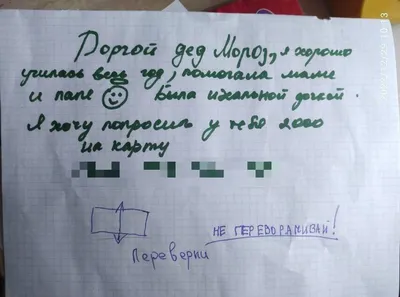 Доргой дед Мороз, я хорошо
училась весь год, помогала маме
и папе Была идеальной дочкой.
Я хочу попросить у тебя 2000
на карту
НЕ ПЕРЕВОРАЧИВАЙ!
Переверни